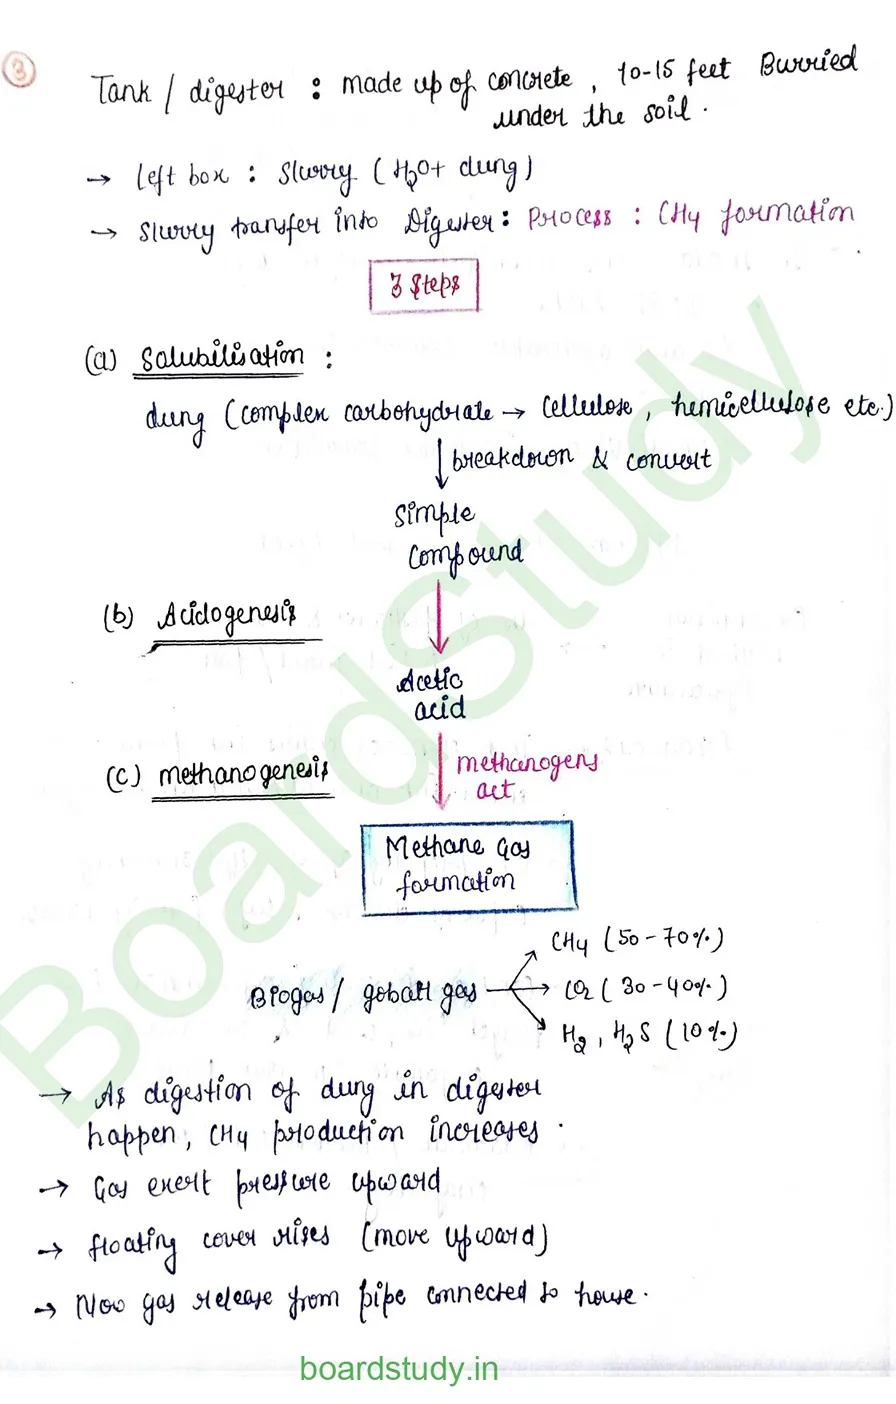 3
Tank / digester : made up of concrete, 10-15 feet Burried
under the soil.
→ left box : Slurry (H2O + dung)
→ Slurry transfer into Digester : Process : CH4 formation
3 Steps
(a) Solubilisation :
dung (complex carbohydrate → cellulose, hemicellulose etc.)
breakdown & convert
Simple
Compound
(b) Acidogenesis
Acetic
acid
(c) methanogenesis
methanogens
act
Methane Gas
formation
CH4 (50-70%)
Biogas / gobar gas → CO2 (30-40%)
H2, H2S (10%)
→ As digestion of dung in digester
happen, CH4 production increases.
→ Gas exert pressure upward
→ floating cover rises (move upward)
→ Now gas release from pipe connected to house.
BoardStudy
boardstudy.in